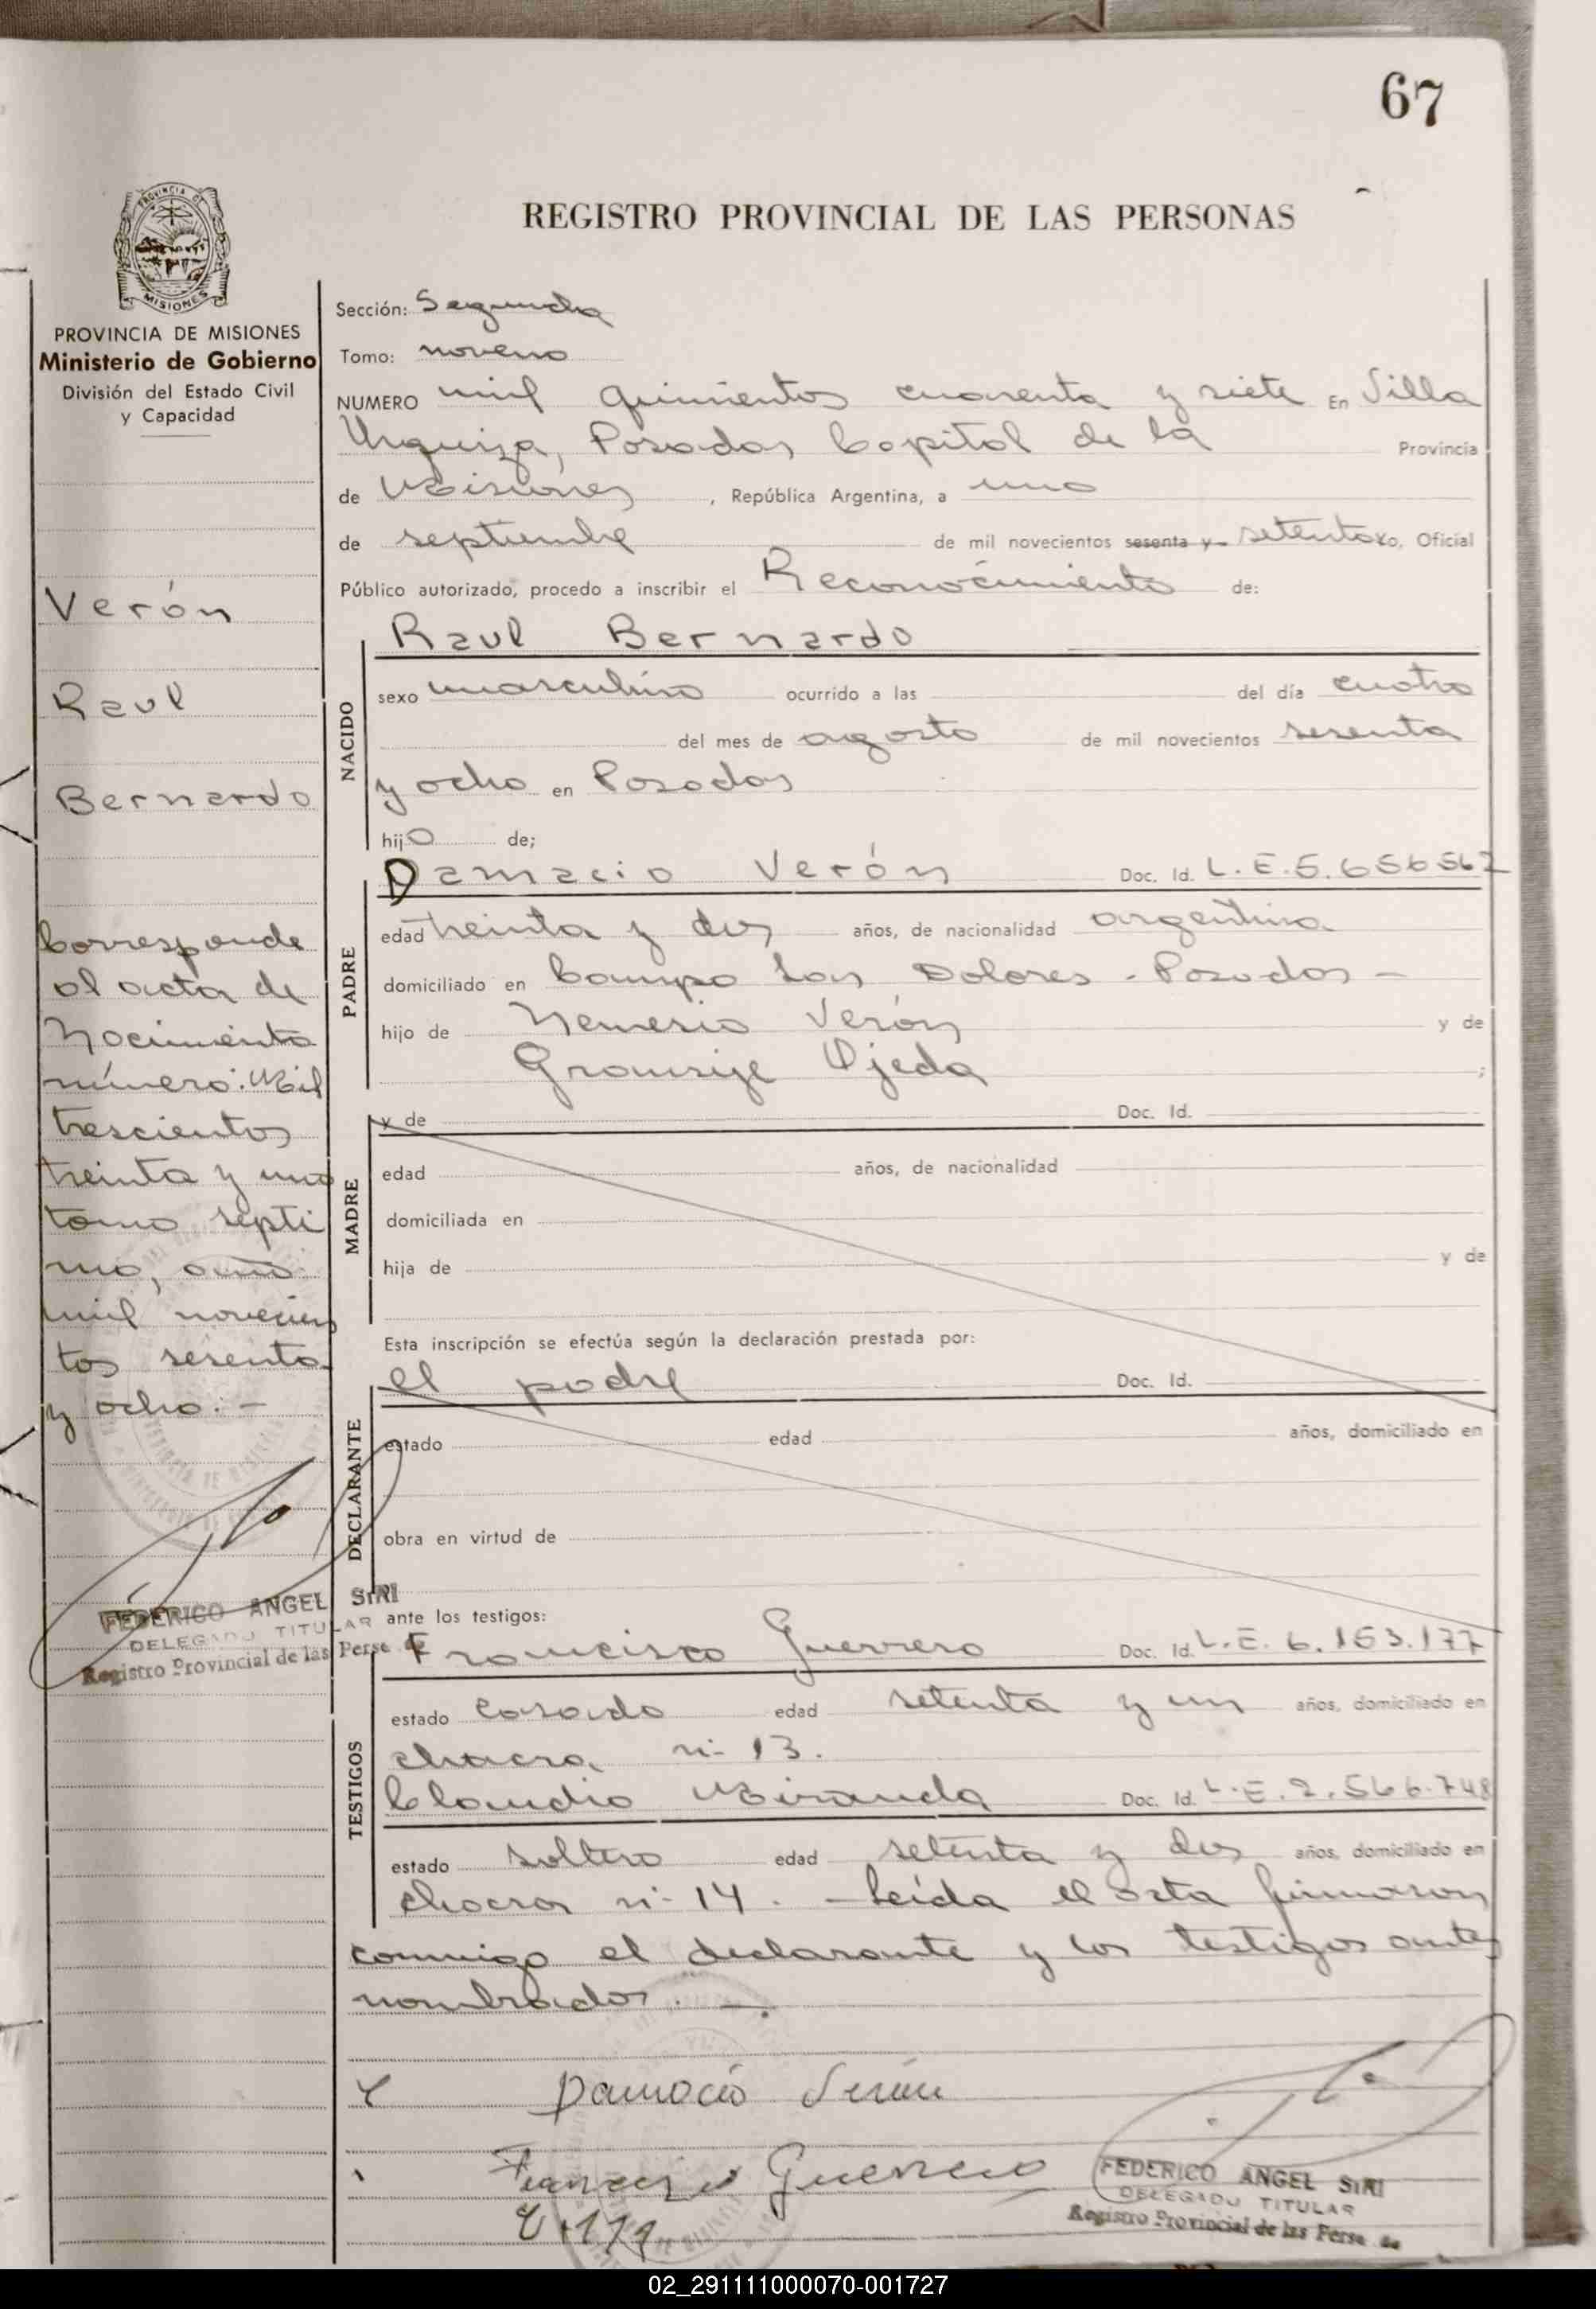 67
REGISTRO PROVINCIAL DE LAS PERSONAS
PROVINCIA DE MISIONES
Ministerio de Gobierno
División del Estado Civil
y Capacidad
Verón
Raul
Bernardo
Corresponde
al acta de
Nacimiento
número: Mil
trescientos
treinta y uno
tomo septi
mo, año
mil novecien
tos sesenta
y ocho. -
FEDERICO ANGEL SIRI
DELEGADO TITULAR
Registro Provincial de las Perso
Sección: Segunda
Tomo: noveno
NUMERO mil quinientos cuarenta y siete En Villa
Urquiza, Posadas Capital de la Provincia
de Misiones, República Argentina, a uno
de septiembre de mil novecientos sesenta y setenta yo, Oficial
Público autorizado, procedo a inscribir el Reconocimiento de:
Raul Bernardo
NACIDO
sexo masculino ocurrido a las del día cuatro
del mes de agosto de mil novecientos sesenta
y ocho en Posadas
hijo de;
Damacio Verón Doc. Id. L.E.5.656567
PADRE
edad treinta y dos años, de nacionalidad argentina
domiciliado en Campo Las Dolores - Posadas -
hijo de Nemesio Verón y de
Ojeda ;
MADRE
y de Doc. Id.
edad años, de nacionalidad
domiciliada en
hija de y de
Esta inscripción se efectúa según la declaración prestada por:
el padre Doc. Id.
DECLARANTE
estado edad años, domiciliado en
obra en virtud de
ante los testigos:
Francisco Guerrero Doc. Id. L.E. 6.163.177
TESTIGOS
estado casado edad setenta y un años, domiciliado en
chacra nº 13.
Claudio Miranda Doc. Id. L.E.2.566.748
estado soltero edad setenta y dos años, domiciliado en
chacra nº 14. - Leída el acta firmaron
conmigo el declarante y los testigos antes
nombrados. -.
Damacio Verón
Francisco Guerrero
FEDERICO ANGEL SIRI
DELEGADO TITULAR
Registro Provincial de las Perso
02_291111000070-001727